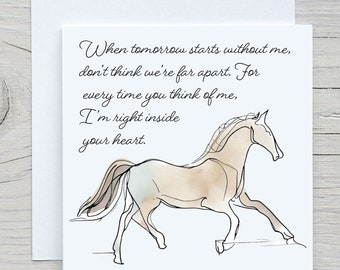 When tomorrow starts without me,
don't think we're far apart. For
every time you think of me,
I'm right inside
your heart.